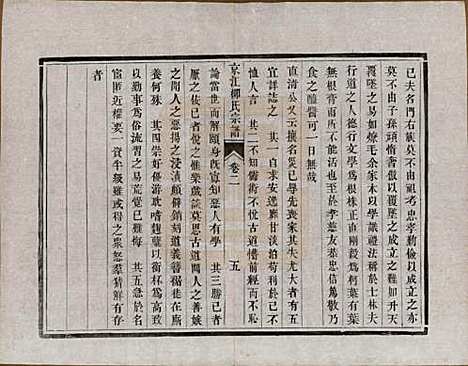 已夫名門右族莫不由祖考忠孝勤儉以成立之亦
莫不由子孫頑惰奢傲以覆墜之成立之難如升天
覆墜之易如燎毛余家本以學識禮法稱於士林夫
行道之人德行文學爲根株正直剛毅爲柯葉有葉
無根膏雨所不能活也至於孝慈友恭忠信篤敬乃
食之醯醬可一日無哉
直清公又云壞名災已辱先喪家其失尤大者五
宜詳誌之 其一自求安逸靡甘淡泊苟利於己不
恤人言 其二不知儒術不悅古道懵前經而不恥
京江柳氏宗譜 卷二 五
論當世而解頤身旣寡知惡人有學 其三勝己者
厭之佞己者悅之惟樂戲談莫思古道聞人之善嫉
之聞人之惡揚之浸漬頗僻銷刻道義簪裾徒在廝
養何殊 其四崇好優游耽嗜麴糵以銜杯爲高致
以勤事爲俗流習之易荒覺已難悔 其五急於名
宦匿近權要一資半級雖或得之衆怒羣猜鮮有存
者